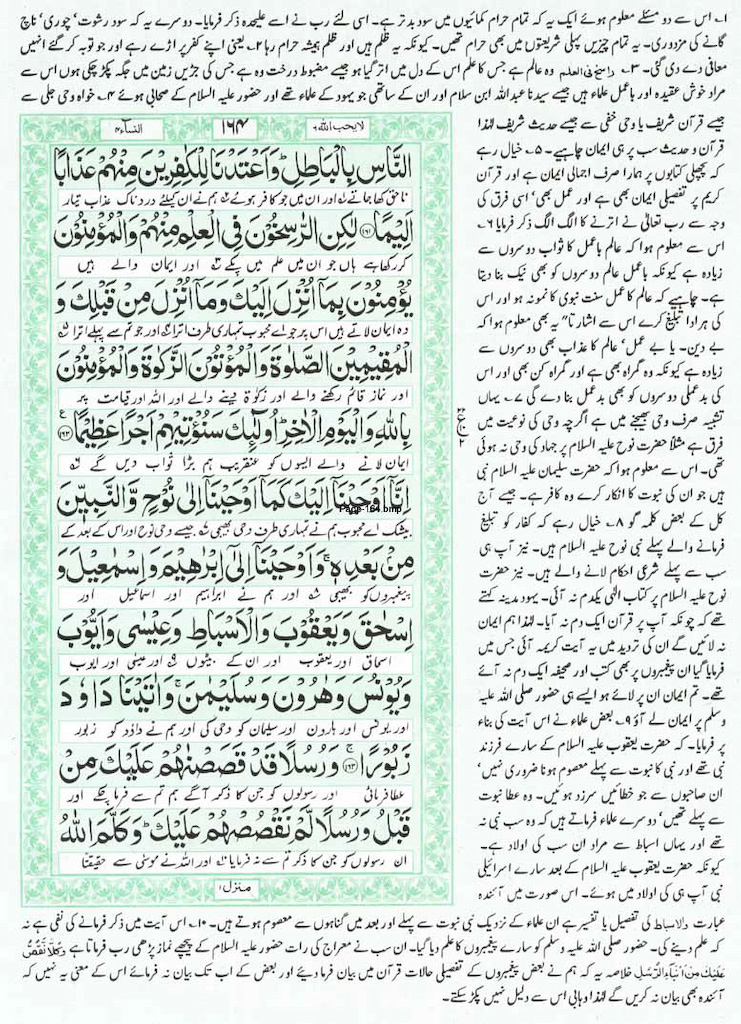 ۱؎ اس سے دو مسئلے معلوم ہوئے ایک یہ کہ تمام حرام کمائیوں میں سود بدتر ہے۔ اسی لئے رب نے اسے علیحدہ ذکر فرمایا۔ دوسرے یہ کہ سود رشوت' چوری' ناچ
گانے کی مزدوری۔ یہ تمام چیزیں پہلی شریعتوں میں بھی حرام تھیں۔ کیونکہ یہ ظلم ہیں اور ظلم ہمیشہ حرام رہا ۲؎ یعنی اپنے کفر پر اڑے رہے اور جو توبہ کر گئے انہیں
معافی دے دی گئی۔ ۳؎ راسخ فی العلم وہ عالم ہے جس کا علم اس کے دل میں اتر گیا ہو جیسے مضبوط درخت وہ ہے جس کی جڑیں زمین میں جگہ پکڑ چکی ہوں اس سے
مراد خوش عقیدہ اور باعمل علماء ہیں جیسے سیدنا عبداللہ ابن سلام اور ان کے ساتھی جو یہود کے علماء تھے اور حضور علیہ السلام کے صحابی ہوئے ۴؎ خواہ وحی جلی سے
جیسے قرآن شریف یا وحی خفی سے جیسے حدیث شریف لہٰذا
قرآن و حدیث سب پر ہی ایمان چاہیے۔ ۵؎ خیال رہے
کہ پچھلی کتابوں پر ہمارا صرف اجمالی ایمان ہے اور قرآن
کریم پر تفصیلی ایمان بھی ہے اور عمل بھی' اسی فرق کی
وجہ سے رب تعالیٰ نے اترنے کا الگ الگ ذکر فرمایا ۶؎
اس سے معلوم ہوا کہ عالم باعمل کا ثواب دوسروں سے
زیادہ ہے کیونکہ باعمل عالم دوسروں کو بھی نیک بنا دیتا
ہے۔ چاہیے کہ عالم کا عمل سنت نبوی کا نمونہ ہو اور اس
کی ہر ادا تبلیغ کرے اس سے اشارتا" یہ بھی معلوم ہوا کہ
بے دین۔ یا بے عمل' عالم کا عذاب بھی دوسروں سے
زیادہ ہے کیونکہ وہ گمراہ بھی ہے اور گمراہ کن بھی اور اس
کی بدعملی دوسروں کو بھی بدعمل بنا دے گی ۷؎ یہاں
تشبیہ صرف وحی بھیجنے میں ہے اگرچہ وحی کی نوعیت میں
فرق ہے مثلاً حضرت نوح علیہ السلام پر جہاد کی وحی نہ ہوئی
تھی۔ اس سے معلوم ہوا کہ حضرت سلیمان علیہ السلام نبی
ہیں جو ان کی نبوت کا انکار کرے وہ کافر ہے۔ جیسے آج
کل کے بعض کلمہ گو ۸؎ خیال رہے کہ کفار کو تبلیغ
فرمانے والے پہلے نبی نوح علیہ السلام ہیں۔ نیز آپ ہی
سب سے پہلے شرعی احکام لانے والے ہیں۔ نیز حضرت
نوح علیہ السلام پر کتاب الٰہی یکدم نہ آئی۔ یہود مدینہ کہتے
تھے کہ چونکہ آپ پر قرآن ایک دم نہ آیا۔ لہٰذا ہم ایمان
نہ لائیں گے ان کی تردید میں یہ آیت کریمہ آئی جس میں
فرمایا گیا ان پیغمبروں پر بھی کتب اور صحیفہ ایک دم نہ آئے
تھے۔ تم ایمان ان پر لائے ہو ایسے ہی حضور صلی اللہ علیہ
وسلم پر ایمان لے آؤ ۹؎ بعض علماء نے اس آیت کی بناء
پر فرمایا۔ کہ حضرت یعقوب علیہ السلام کے سارے فرزند
نبی تھے اور نبی کا نبوت سے پہلے معصوم ہونا ضروری نہیں'
ان صاحبوں سے جو خطائیں سرزد ہوئیں۔ وہ عطا نبوت
سے پہلے تھیں' دوسرے علماء فرماتے ہیں کہ وہ سب نبی نہ
تھے اور یہاں اسباط سے مراد ان سب کی اولاد ہے۔
کیونکہ حضرت یعقوب علیہ السلام کے بعد سارے اسرائیلی
نبی آپ ہی کی اولاد میں ہوئے۔ اس صورت میں آئندہ
لایحب اللہ ۶
۱۶۴
النسآء ۴
النَّاسِ بِالْبَاطِلِ ؕ وَاَعْتَدْنَا لِلْكٰفِرِیْنَ مِنْهُمْ عَذَابًا
ناحق کھا جاتے اور ان میں جو کافر ہوئے ہم نے ان کیلئے دردناک عذاب تیار
اَلِیْمًا ﴿۱۶۱﴾ لٰكِنِ الرّٰسِخُوْنَ فِی الْعِلْمِ مِنْهُمْ وَالْمُؤْمِنُوْنَ
کر رکھا ہے ہاں جو ان میں علم میں پکے اور ایمان والے ہیں
یُؤْمِنُوْنَ بِمَاۤ اُنْزِلَ اِلَیْكَ وَمَاۤ اُنْزِلَ مِنْ قَبْلِكَ وَ
وہ ایمان لاتے ہیں اس پر جو اے محبوب تمہاری طرف اترا اور جو تم سے پہلے اترا
الْمُقِیْمِیْنَ الصَّلٰوةَ وَالْمُؤْتُوْنَ الزَّكٰوةَ وَالْمُؤْمِنُوْنَ
اور نماز قائم رکھنے والے اور زکوٰۃ دینے والے اور اللہ اور قیامت پر
بِاللّٰهِ وَالْیَوْمِ الْاٰخِرِ ؕ اُولٰٓئِكَ سَنُؤْتِیْهِمْ اَجْرًا عَظِیْمًا ﴿۱۶۲﴾ ع
ایمان لانے والے ایسوں کو عنقریب ہم بڑا ثواب دیں گے
اِنَّاۤ اَوْحَیْنَاۤ اِلَیْكَ كَمَاۤ اَوْحَیْنَاۤ اِلٰی نُوْحٍ وَّالنَّبِیّٖنَ
Page-164.bmp
بیشک اے محبوب ہم نے تمہاری طرف وحی بھیجی جیسے وحی نوح اور اس کے بعد کے
مِنْۢ بَعْدِهٖ ۚ وَاَوْحَیْنَاۤ اِلٰۤی اِبْرٰهِیْمَ وَاِسْمٰعِیْلَ وَ
پیغمبروں کو بھیجی اور ہم نے ابراہیم اور اسماعیل اور
اِسْحٰقَ وَیَعْقُوْبَ وَالْاَسْبَاطِ وَعِیْسٰی وَاَیُّوْبَ
اسحاق اور یعقوب اور ان کے بیٹوں اور عیسٰی اور ایوب
وَیُوْنُسَ وَهٰرُوْنَ وَسُلَیْمٰنَ ۚ وَاٰتَیْنَا دَاوٗدَ
اور یونس اور ہارون اور سلیمان کو وحی کی اور ہم نے داؤد کو زبور
زَبُوْرًا ﴿۱۶۳﴾ وَرُسُلًا قَدْ قَصَصْنٰهُمْ عَلَیْكَ مِنْ
عطا فرمائی اور رسولوں کو جن کا ذکر آگے ہم تم سے فرما چکے اور
قَبْلُ وَرُسُلًا لَّمْ نَقْصُصْهُمْ عَلَیْكَ ؕ وَكَلَّمَ اللّٰهُ
ان رسولوں کو جن کا ذکر تم سے نہ فرمایا اور اللہ نے موسٰی سے حقیقتًا
منزل ۱
عبارت والاسباط کی تفصیل یا تفسیر ہے ان علماء کے نزدیک نبی نبوت سے پہلے اور بعد میں گناہوں سے معصوم ہوتے ہیں۔ ۱۰؎ اس آیت میں ذکر فرمانے کی نفی ہے نہ
کہ علم دینے کی۔ حضور صلی اللہ علیہ وسلم کو سارے پیغمبروں کا علم دیا گیا۔ ان سب نے معراج کی رات حضور علیہ السلام کے پیچھے نماز پڑھی رب فرماتا ہے وَكُلًّا نَّقُصُّ
عَلَیْكَ مِنْ اَنْۢبَآءِ الرُّسُلِ خلاصہ یہ کہ ہم نے بعض پیغمبروں کے تفصیلی حالات قرآن میں بیان فرما دیئے اور بعض کے اب تک بیان نہ فرمائے اس کے معنی یہ نہیں کہ
آئندہ بھی بیان نہ کریں گے لہٰذا وہابی اس سے دلیل نہیں پکڑ سکتے۔